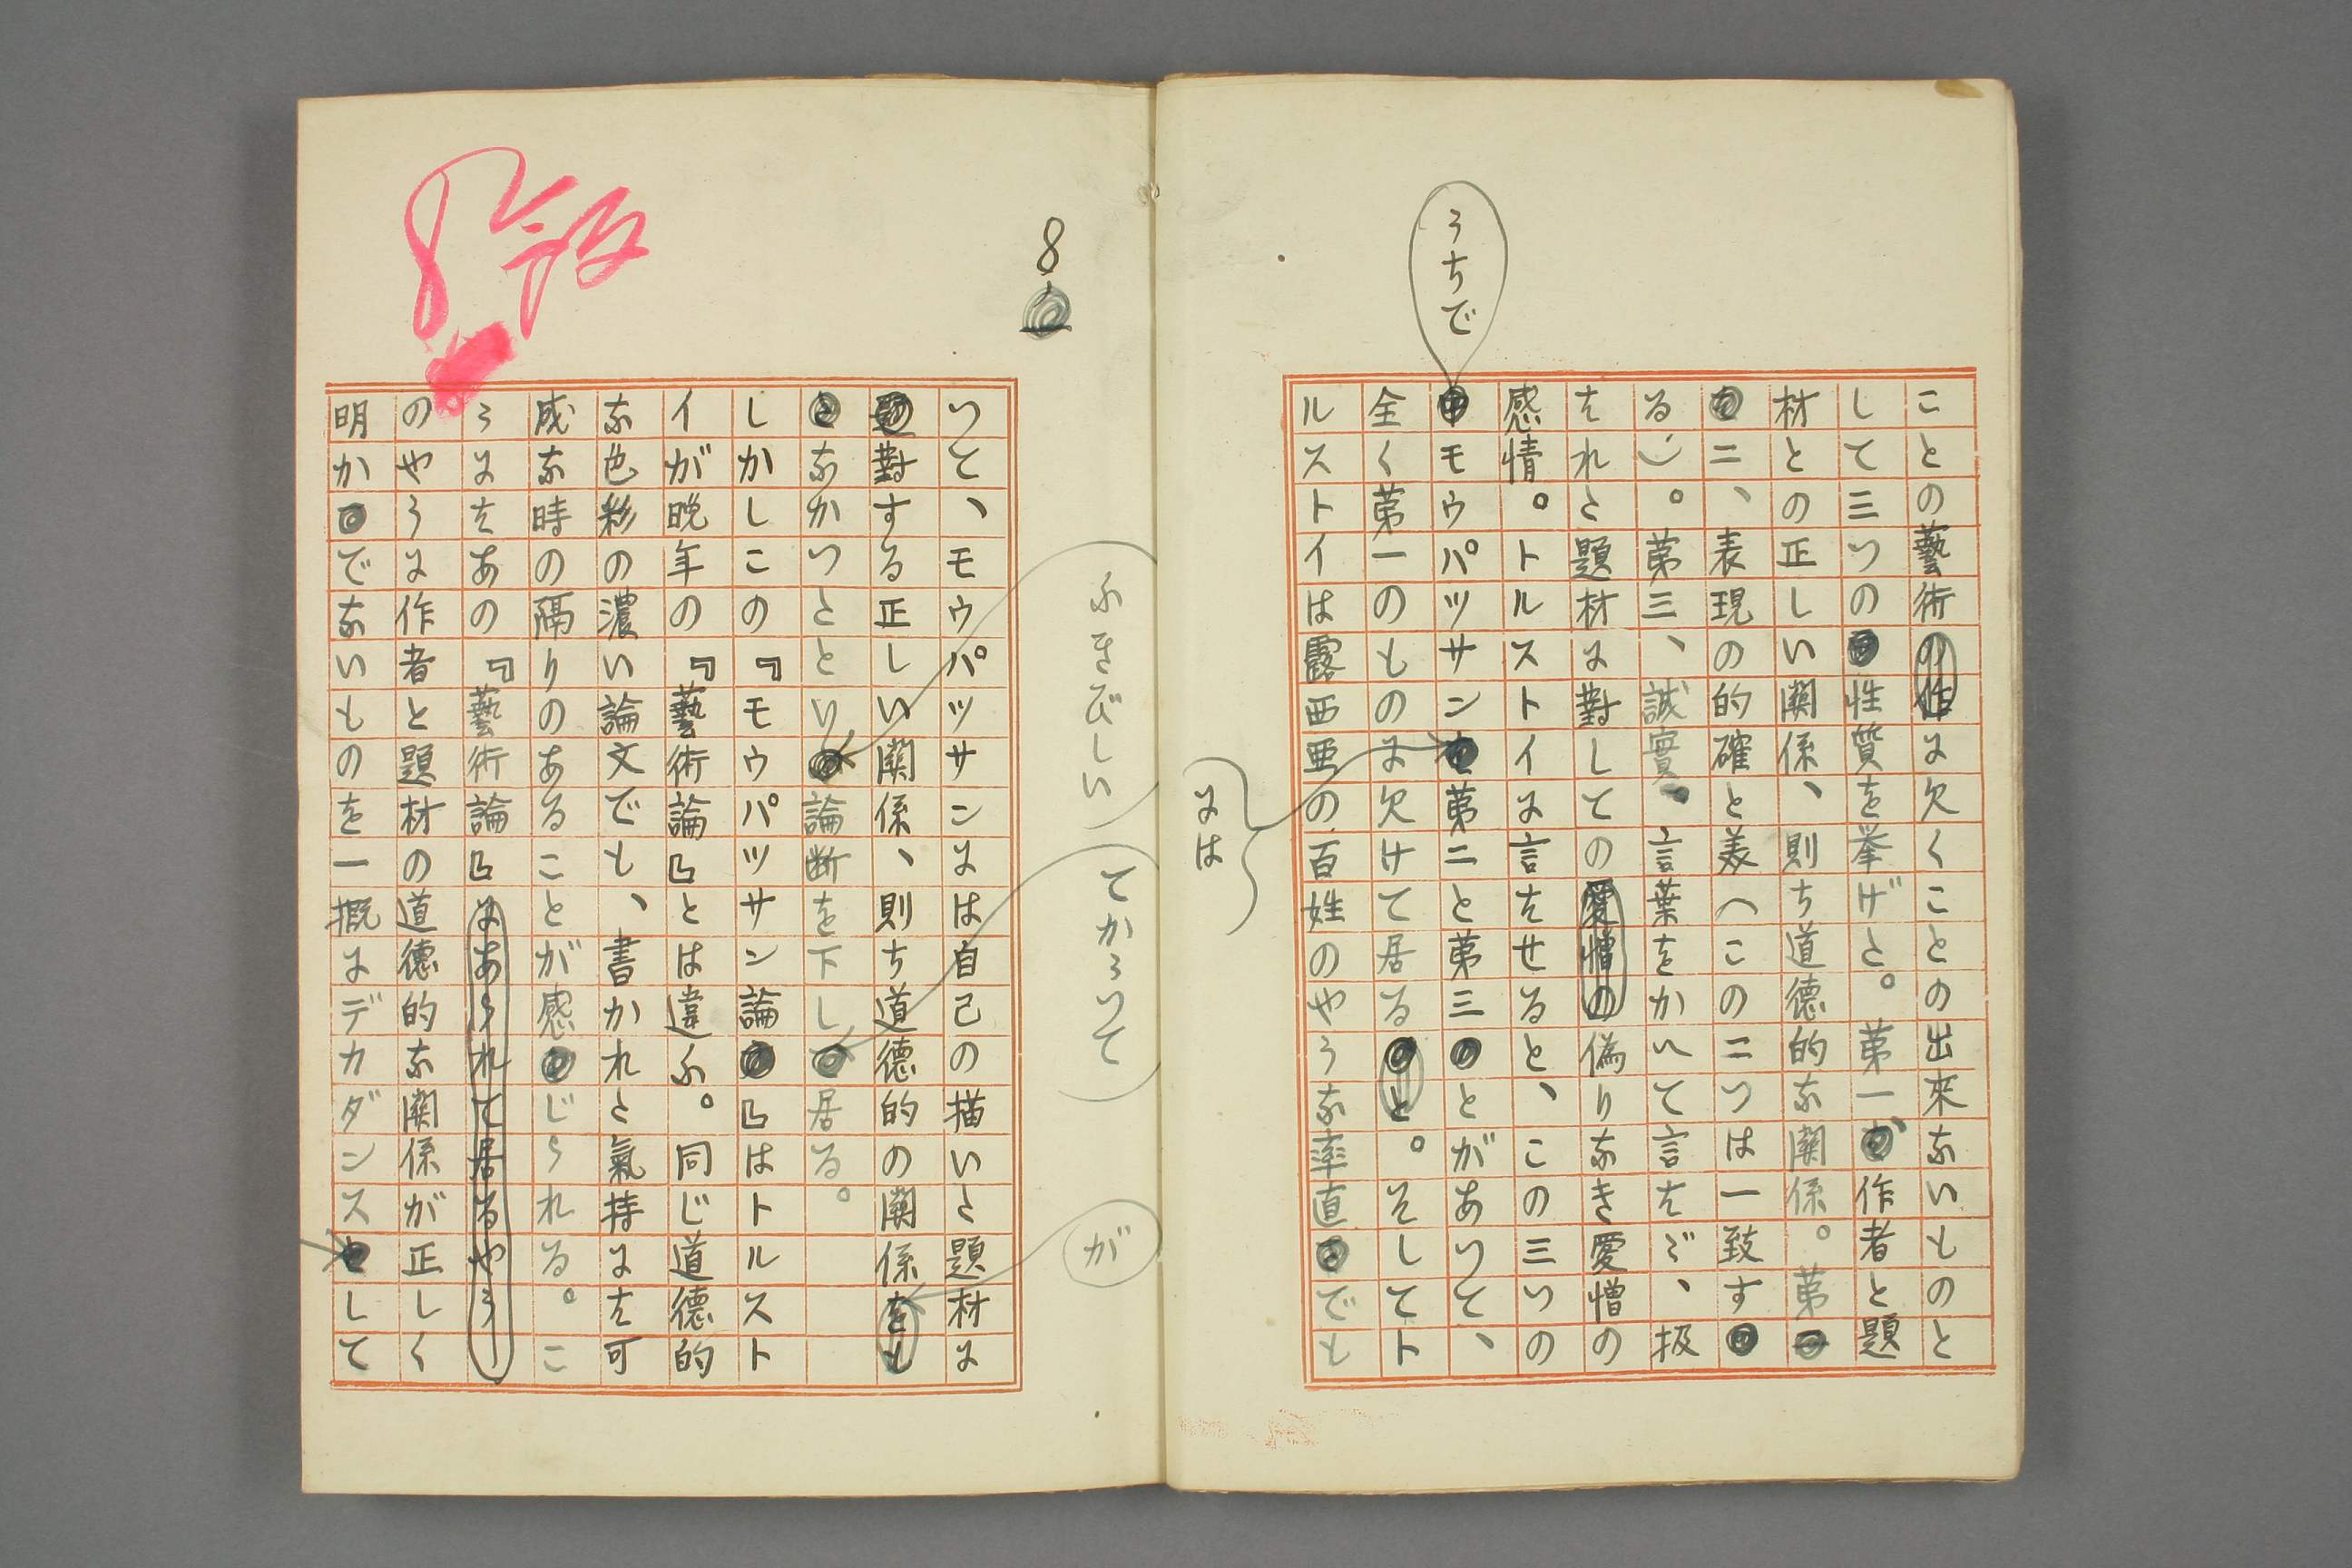 うちで
ことの藝術の作に欠くことの出来ないものと
して三つの性質を挙げた。第一、作者と題
材との正しい關係、則ち道徳的な關係。第
二、表現の的確と美（この二つは一致す
る）。第三、誠實、言葉をかへて言へば、扱
はれた題材に對しての愛憎の偽りなき愛憎の
感情。トルストイに言はせると、この三つの
モウパツサン第二と第三とがあつて、
全く第一のものに欠けて居ると。そしてト
ルストイは露西亜の百姓のやうな率直でも
には
8
ふきびしい
てかゝつて
が
つて、モウパツサンには自己の描いた題材に
對する正しい關係、則ち道徳的の關係をも
なかつたとり論断を下し居る。
しかしこの『モウパツサン論』はトルスト
イが晩年の『藝術論』とは違ふ。同じ道徳的
な色彩の濃い論文でも、書かれた氣持には可
成な時の隔りのあることが感じられる。こ
ゝにはあの『藝術論』にあらはれて居るやう
のやうに作者と題材の道徳的な關係が正しく
明かでないものを一概にデカダンスして
8